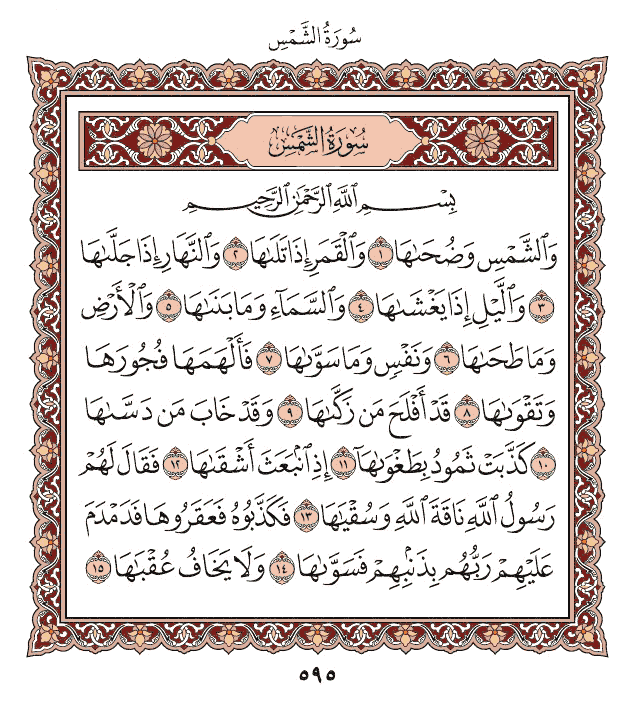 سُورَةُ الشَّمْسِ
سُورَةُ الشَّمْسِ
بِسْمِ اللَّهِ الرَّحْمَٰنِ الرَّحِيمِ
وَالشَّمْسِ وَضُحَىٰهَا ١ وَالْقَمَرِ إِذَا تَلَىٰهَا ٢ وَالنَّهَارِ إِذَا جَلَّىٰهَا
٣ وَالَّيْلِ إِذَا يَغْشَىٰهَا ٤ وَالسَّمَآءِ وَمَا بَنَىٰهَا ٥ وَالْأَرْضِ
وَمَا طَحَىٰهَا ٦ وَنَفْسٍ وَمَا سَوَّىٰهَا ٧ فَأَلْهَمَهَا فُجُورَهَا
وَتَقْوَىٰهَا ٨ قَدْ أَفْلَحَ مَن زَكَّىٰهَا ٩ وَقَدْ خَابَ مَن دَسَّىٰهَا
١٠ كَذَّبَتْ ثَمُودُ بِطَغْوَىٰهَآ ١١ إِذِ انۢبَعَثَ أَشْقَىٰهَا ١٢ فَقَالَ لَهُمْ
رَسُولُ اللَّهِ نَاقَةَ اللَّهِ وَسُقْيَٰهَا ١٣ فَكَذَّبُوهُ فَعَقَرُوهَا فَدَمْدَمَ
عَلَيْهِمْ رَبُّهُم بِذَنۢبِهِمْ فَسَوَّىٰهَا ١٤ وَلَا يَخَافُ عُقْبَٰهَا ١٥
٥٩٥